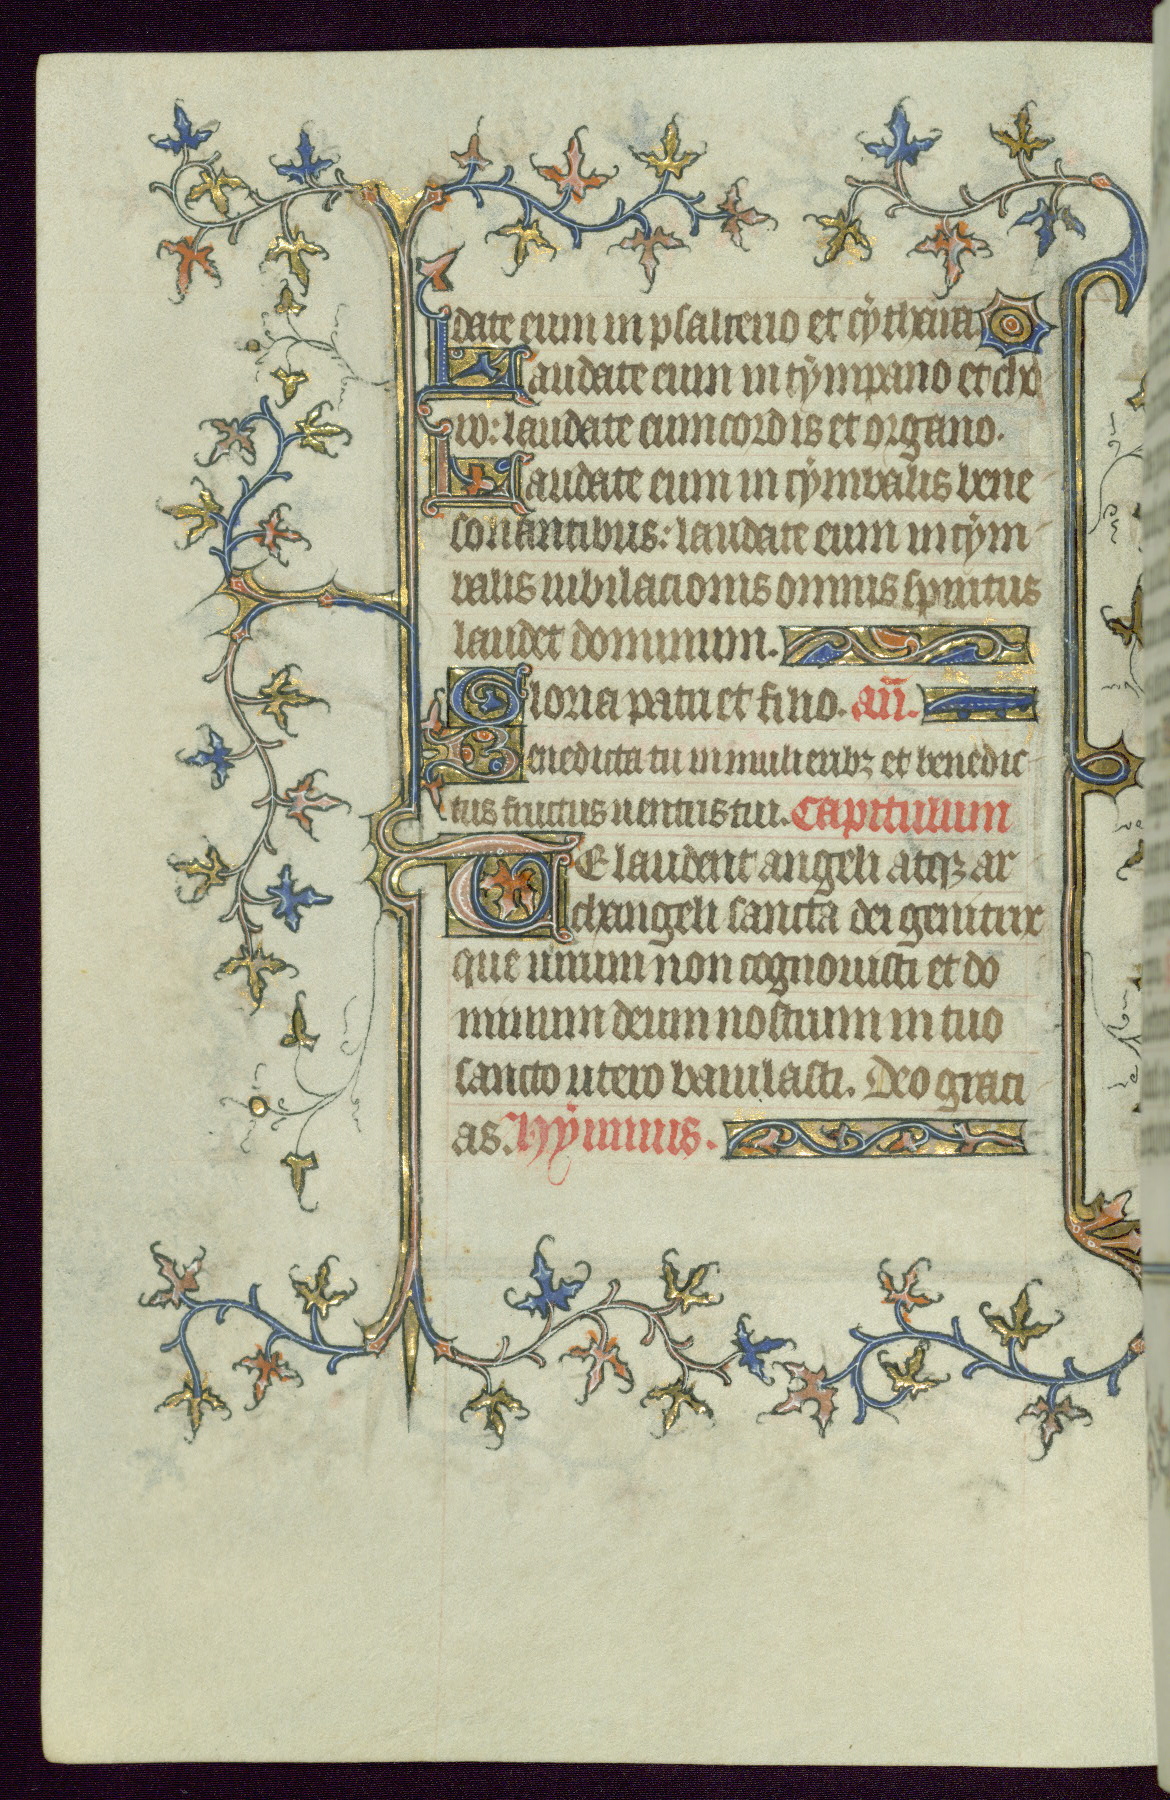 date eum in psalterio et cythara
Laudate eum in tympano et cho
ro: laudate eum cordis et organo.
Laudate eum in cymbalis bene
sonantibus: laudate eum in cym
balis iubilacionis omnis spiritus
laudet dominum.
Gloria patri et filio. añ.
Benedicta tu in mulieribꝫ et benedic
tus fructus uentris tui. Capitulum
TE laudent angeli atqꝫ ar
changeli sancta dei genitrix
que uirum non cognouisti et do
minum deum nostrum in tuo
sancto utero baiulasti. Deo graci
as. Hymnus.